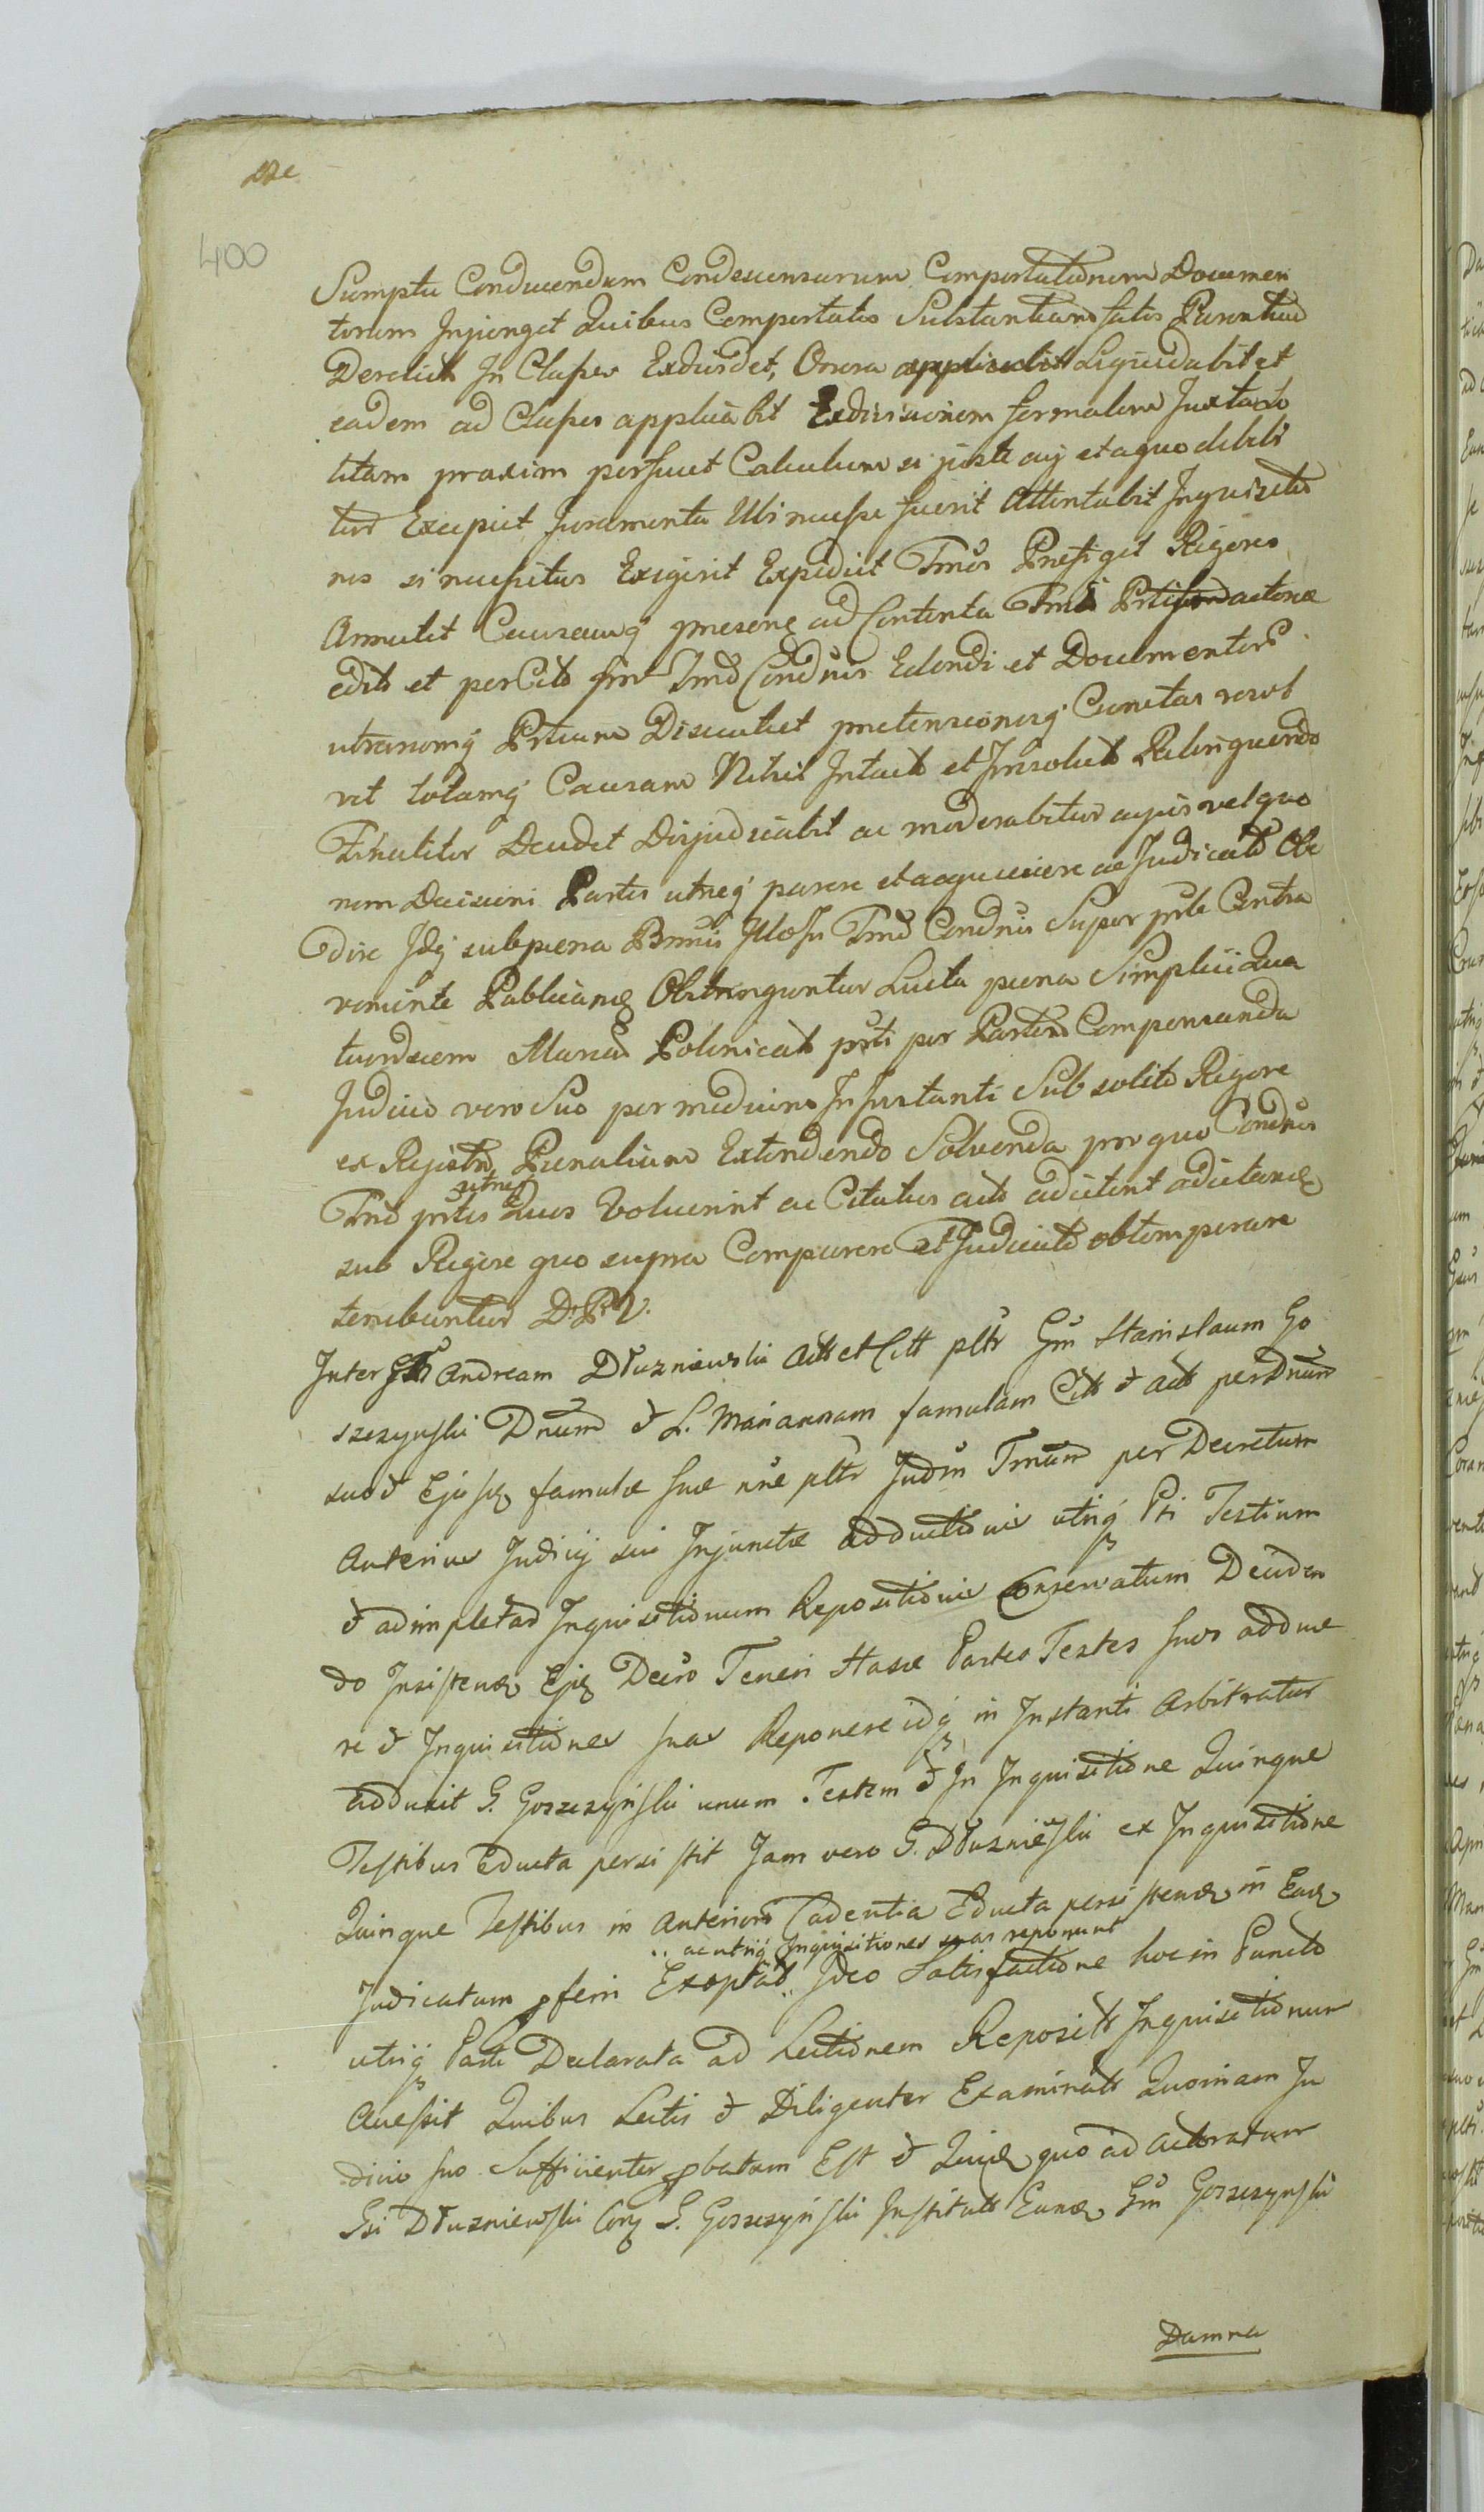 400
Sumptu Conducendum Condescensurum Comportationem Documen
torum Injunget Quibus Comportatis Substantiam Parentum
Derelict In Classes Exdividet, Onera Liquidabit et
eadem ad Classes applicabit Exdivisionem formalem Juxta so
litam praxim perficiet Calculum si juste cuj et a quo debebi
tur Excipiet Juramenta Ubi necesse fuerit Attentabit Inquisitio
nes si necessitas Exigerit Expediet Prefiget Rigores
Annulet ad Contenta actoreæ
edit et Ind Condnis Edendi et Documentors
utranomq Prtium Discutiet pretensionesq Cunctas resol
vet totamq Causam Nihil Intact et Irresolut Relinquendo
Finaliter Decidet Dijudicabit ac moderabitur cujus vel quo
rum Decisioni Partes utræq parere et acquiescere ac Judicato Obe
dire Idq sub pœna Bannis Illo In Condnis Super prte Contra
veniente Publicanæ Obstringuntur Luita pœna Simplici Qua
tuordecem Marcas Polonicat prti per Partem Compensanda
Judicio vero Suo per medium In Instanti Sub solito Rigore
ex Registro Pœnalium Extendendo Solvenda pro quo Condnis
utræq
prtes Duos Voluerint ac Citatus acto adcitent adcitandæ
sub Rigore quo supra Comparere et Judicato obtemperare
tenebuntur D. P. V.
Inter Andream Dłuzniewski Actt et Citt pltr Gm Stanislaum Go
szczynski Dnum & L. Mariannam famulam Citt & actt per Dnum
suo & Ejusq famulæ suæ nne pltr Judm Tmum per Decretum
Anterius Judicij sui Injunctæ adductionis utriq Pti Testium
& adimpletas Inquisitionum Repositionis Conservatum Deciden
do Insistenæ Ejq Decro Teneri Hasæ Partes Testes suos adduce
re & Inquisitiones suas Reponere idq in Instanti Arbitratur
adduxit G. Goszczynski unum Testem & In Inquisitione Quinque
Testibus Educta persistit Jam vero G. Dłuzniewski ex Inquisitione
Quinque Testibus in Anteriori Cadentia Educta persistenæ in Euæ
ac utriq Inquisitiones suas reponunt
Judicatum pferri Exoptat Ideo Satisfactione hoc in Puncto
utriq Parti Declarata ad Lectionem Reposit Inquisitionum
Accessit Quibus Lectis & Diligenter Examinatt Quoniam Ju
dicio suo Sufficienter pbatum Est & quo ad Actoratum
Gsi Dłuzniewski Conq G. Goszczynski Institutt Eunæ Gm Goszczynski
Damna